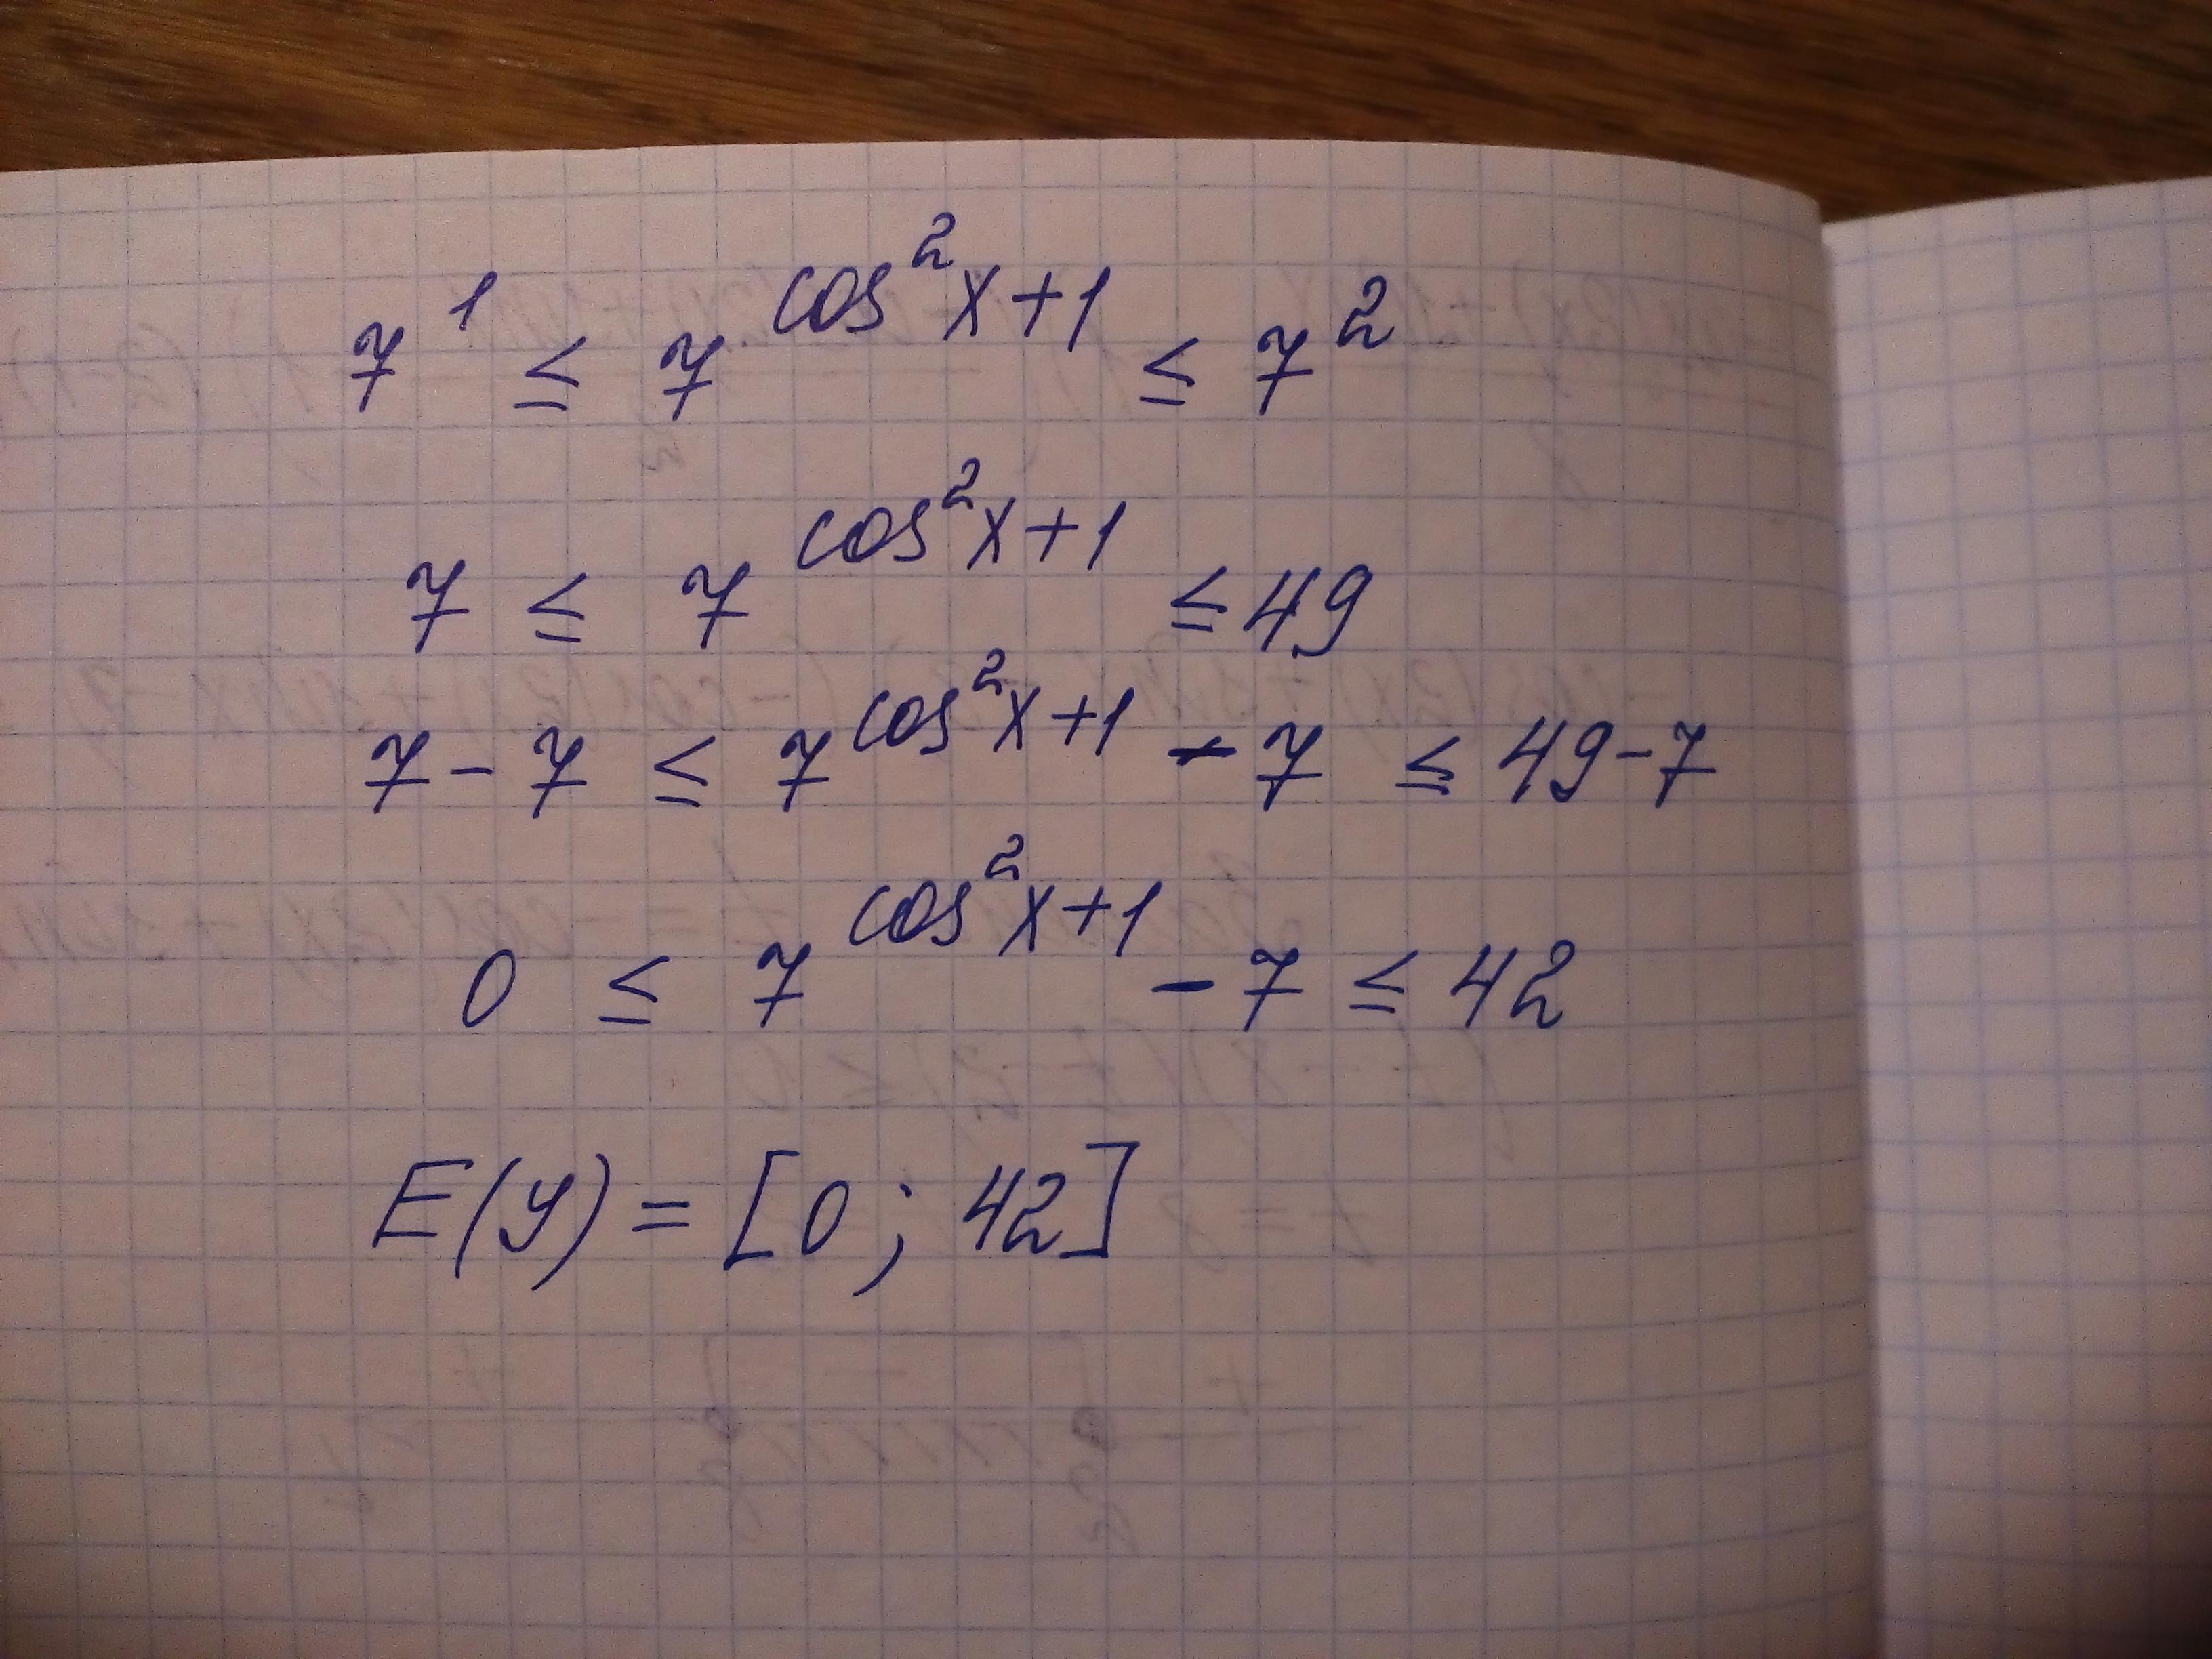 7¹ ≤ 7^(cos²x+1) ≤ 7²
7 ≤ 7^(cos²x+1) ≤ 49
7 - 7 ≤ 7^(cos²x+1) - 7 ≤ 49 - 7
0 ≤ 7^(cos²x+1) - 7 ≤ 42
E(y) = [0; 42]